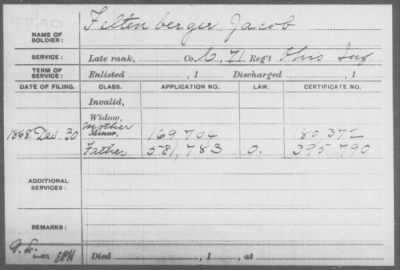 Feltenberger Jacob
NAME OF SOLDIER:
SERVICE: Late rank, Co. C. 71 Reg't Ohio Inf
TERM OF SERVICE: Enlisted , 1 Discharged , 1
DATE OF FILING. CLASS. APPLICATION NO. LAW. CERTIFICATE NO.
Invalid,
Widow,
Mother
1868 Dec. 30 Minor, 169,704 180 372
Father 581,783 395,790
ADDITIONAL SERVICES:
REMARKS:
Died , 1 , at